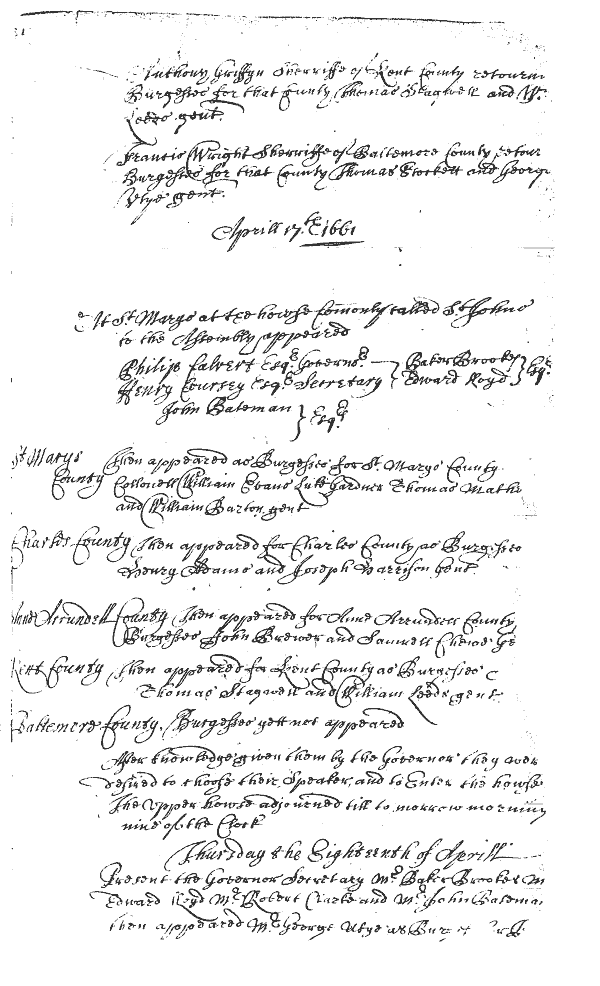 Anthony Griffyn Sherriffe of Kent County retourn
Burgesses for that County Thomas Stagwell and Wm
Leeds gent.
Francis Wright Sherriffe of Baltemore County retour
Burgesses for that County Thomas Stockett and George
Utye gent.
Aprill 17.th 1661
At St Marys at the howse Comonly called St Johns
to the Assembly appeared
Philip Calvert Esqr Governor } Baker Brooke } Esqr
Henry Coursey Esqr Secretary } Edward Lloyd }
John Bateman } Esqr
St Marys County Then appeared as Burgesses for St. Marys County
Collonell William Evans Luke Gardner Thomas Mathe
and William Barton gent
Charles County Then appeared for Charles County as Burgesses
Henry Adams and Joseph Harrison gent.
Arrundell County Then appeared for Anne Arrundell County
Burgesses John Brewer and Samuell Chewe
Kent County Then appeared for Kent County as Burgesses
Thomas Stagwell and William Leeds gent
Baltemore County. Burgesses yett not appeared
After knowledge given them by the Governor they wer
desired to choose their Speaker and to Enter the howse
The Upper howse adjourned till to morrow morning
nine of the Clock
Thursday the Eighteenth of Aprill
Present the Governor Secretary Mr Baker Brooke M
Edward Lloyd Mr Robert Clarke and Mr John Batema
then appeared Mr George Utye as